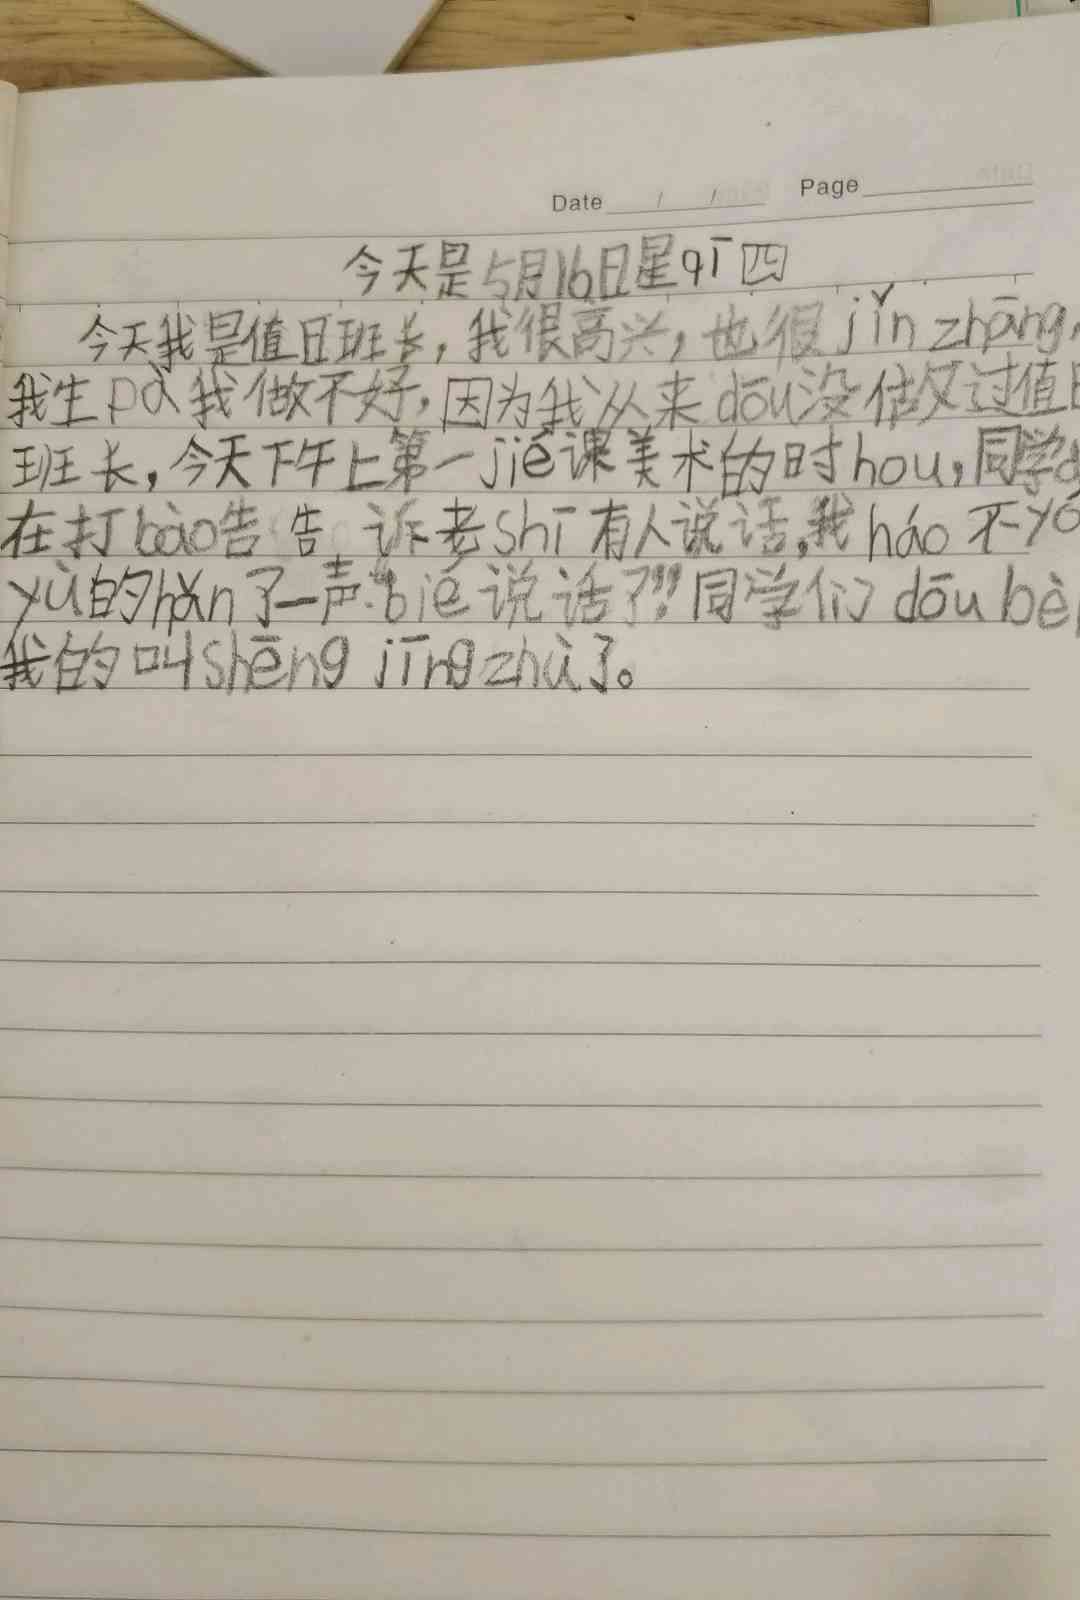 Date / / Page
今天是5月16日星qī四
今天我是值日班长，我很高兴，也很jǐn zhāng，
我生pà我做不好，因为我从来dōu没做过值日
班长，今天下午上第一jié课美术的时hou，同学
在打bào告 告诉老shī有人说话，我háo不yó
yù的hǎn了一声：“bié说话了!!”同学们dōu bèi
我的叫shēng jīng zhù了。